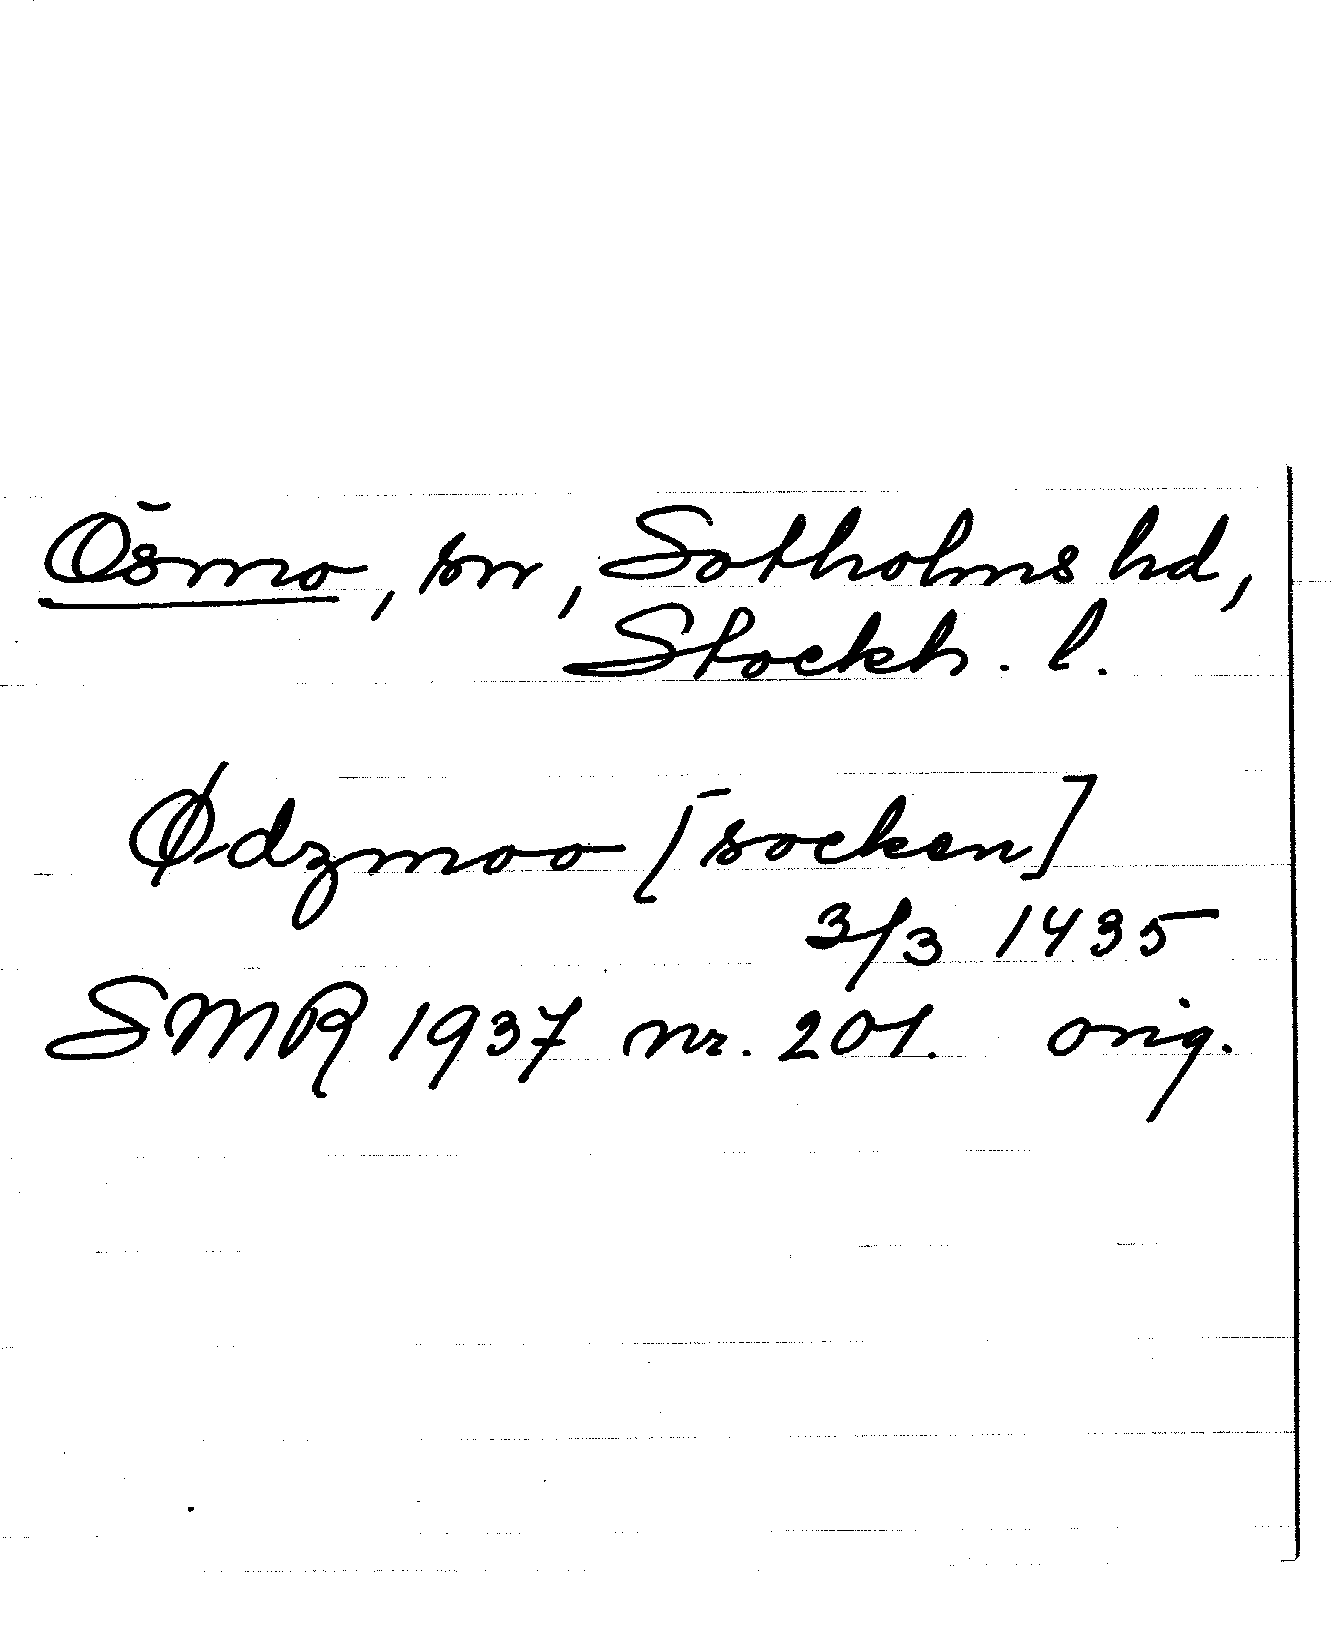 Ösmo, sn, Sotholms hd,
Stockh. l.
Ødzmoo [socken]
3/3 1435
SMR 1937 nr. 201. orig.